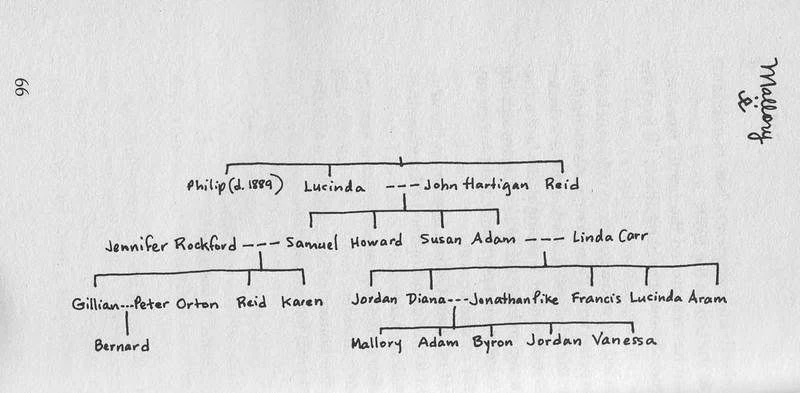 66
Mallory
&
Philip (d. 1889) Lucinda --- John Hartigan Reid
Jennifer Rockford --- Samuel Howard Susan Adam --- Linda Carr
Gillian...Peter Orton Reid Karen Jordan Diana --- Jonathan Pike Francis Lucinda Aram
Bernard Mallory Adam Byron Jordan Vanessa